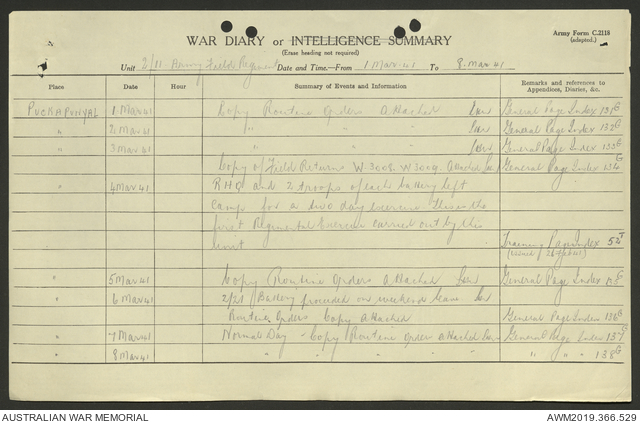 Army Form C.2118
(adapted.)
WAR DIARY or INTELLIGENCE SUMMARY
(Erase heading not required)
Unit 2/11 Army Field Regiment Date and Time.—From 1 Mar 41 To 8 Mar 41
Place Date Hour Summary of Events and Information Remarks and references to Appendices, Diaries, &c.
PUCKAPUNYAL 1 Mar 41 Copy Routine Orders Attached General Page Index 131G
" 2 Mar 41 " " " General Page Index 132G
" 3 Mar 41 General Page Index 133G
Copy of Field Returns W.3008. W3009. Attached General Page Index 134G
" 4 Mar 41 RHQ and 2 troops of each battery left
camp for a two day exercise This is the
first Regimental Exercise carried out by the
unit Training Page Index 54T
(issued 26 Feb 41)
" 5 Mar 41 Copy Routine Orders Attached General Page Index
" 6 Mar 41 2/21 Battery proceeded on weekend leave
Routine Orders Copy attached General Page Index 136G
" 7 Mar 41 Normal Day - Copy Routine Orders Attached General Page Index 137G
" 8 Mar 41 " " " " " " 138G
AUSTRALIAN WAR MEMORIAL AWM2019.366.529